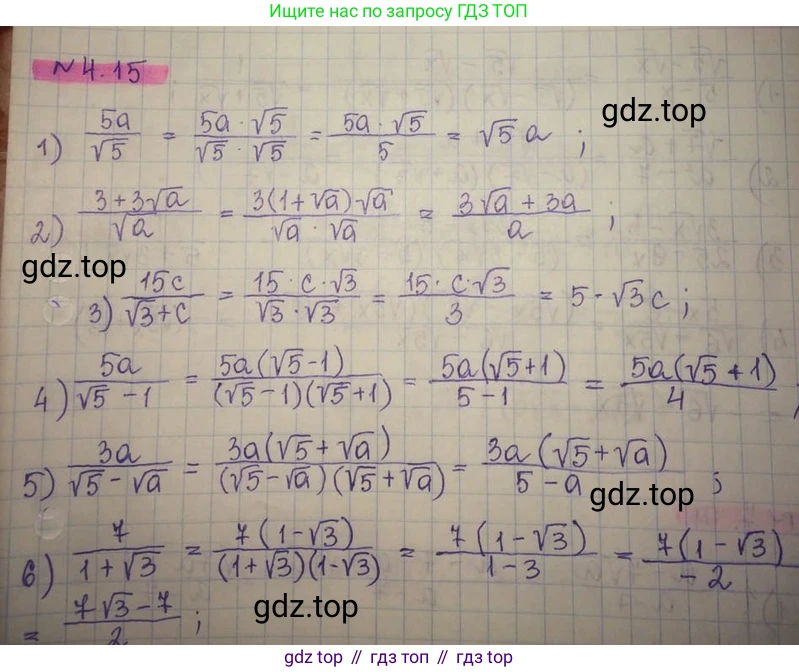 Ищите нас по запросу ГДЗ ТОП
№4.15
1) 5a/√5 = 5a·√5/√5·√5 = 5a·√5/5 = √5 a ;
gdz.top
2) 3+3√a/√a = 3(1+√a)√a/√a·√a = 3√a+3a/a ;
gdz.top
3) 15c/√3+c = 15·c·√3/√3·√3 = 15·c√3/3 = 5·√3c ;
4) 5a/√5-1 = 5a(√5-1)/(√5-1)(√5+1) = 5a(√5+1)/5-1 = 5a(√5+1)/4 ;
5) 3a/√5-√a = 3a(√5+√a)/(√5-√a)(√5+√a) = 3a(√5+√a)/5-a ;
gdz.top
6) 7/1+√3 = 7(1-√3)/(1+√3)(1-√3) = 7(1-√3)/1-3 = 7(1-√3)/-2
= 7√3-7/2 ;
gdz.top
gdz.top // гдз топ // gdz top